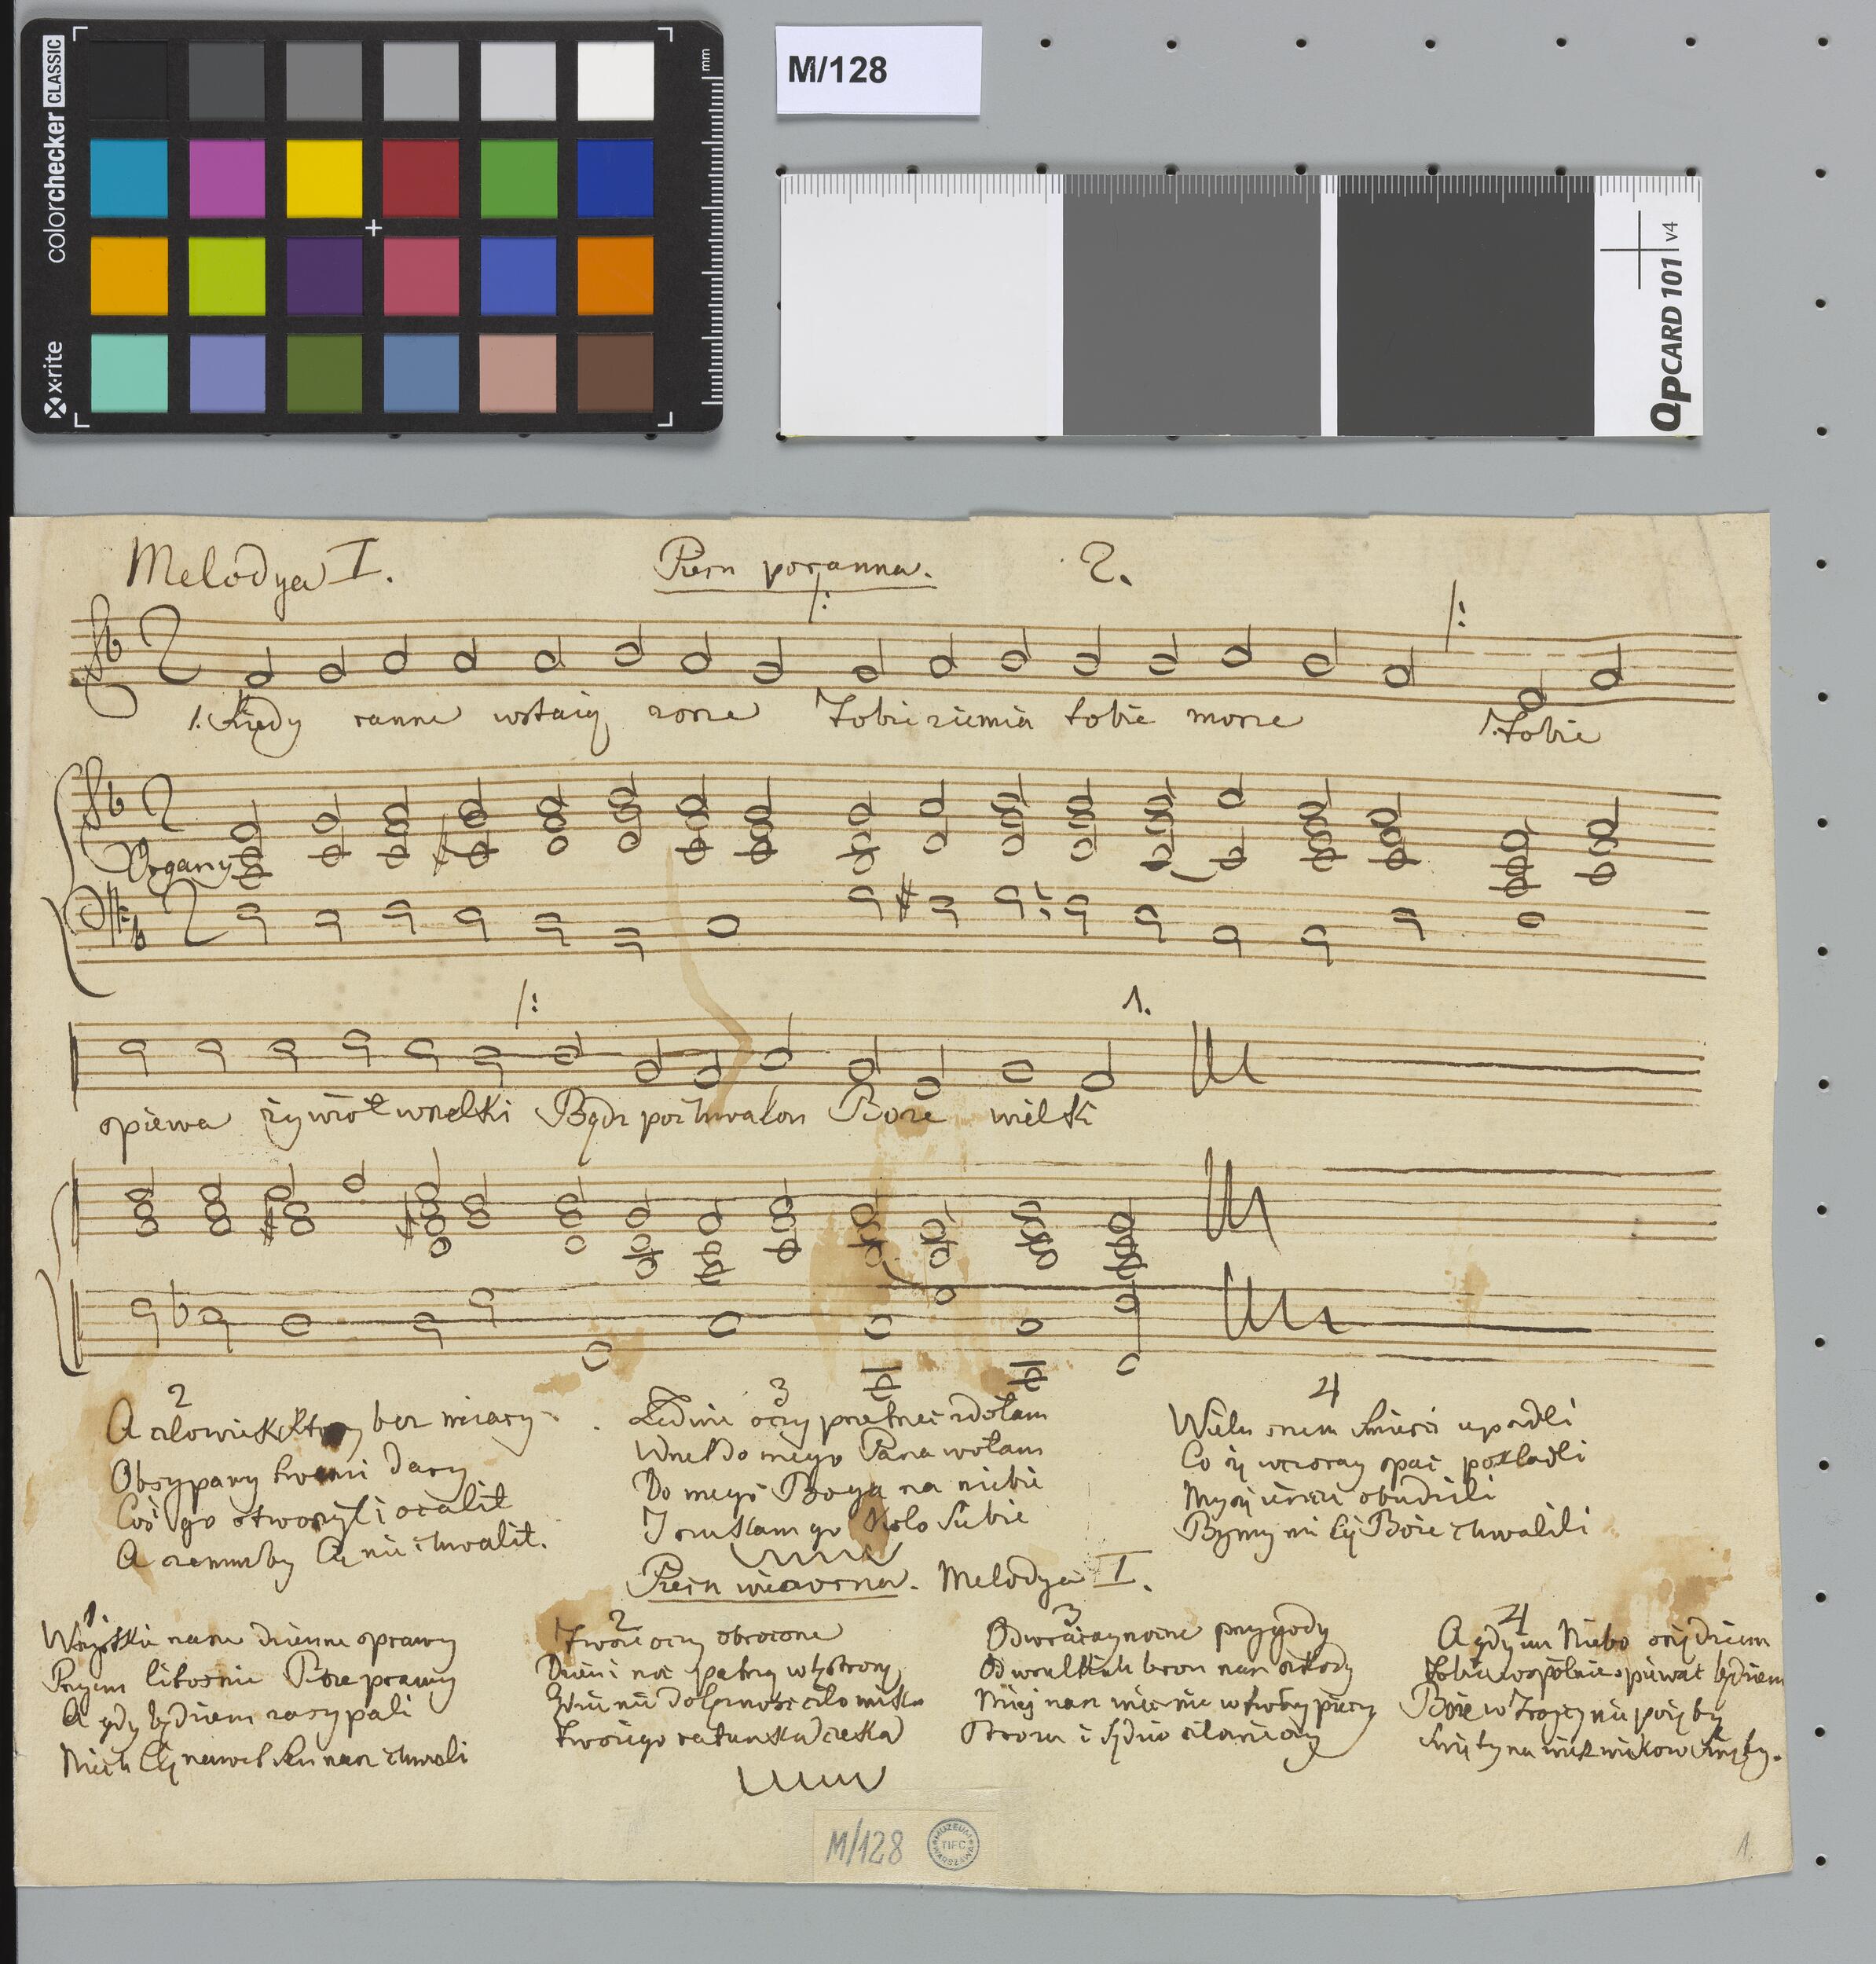 colorchecker CLASSIC
x·rite
mm
M/128
QPCARD 101 v4
Melodya I.
Piesn poranna.
2.
1. Kiedy ranne wstaią zorze Tobie ziemia tobie morze Tobie
Organy
1.
spiewa żywioł wszelki Bądz pochwalon Boże wielki
2
A człowiek ktory bez miary
Obsypany twemi dary
Coś go stworzył i ocalił
A czemuzby Cię nie chwalił.
3
Ledwie oczy przetrzeć zdołam
Wnet do mego Pana wołam
Do mego Boga na niebie
I szukam go koło siebie
4
Wielu snem smierci upadli
Co się wczoray spać pokładli
My się ieszcze obudzili
Bysmy Cię Boże chwalili
Piesn wieczorna. Melodya I.
1.
Wszystkie nasze dzienne sprawy
Przym litośnie Boże prawy
A gdy będziem zasypiali
Niech Cię nawet sen nasz chwali
2
Twoie oczy obrocone
Dzien i noc patrzą w tę stronę
Gdzie niedołężność człowieka
Twoiego ratunku czeka
3
Odwracay nocne przygody
Od wszelkich bron nas szkody
Miey nas wiecznie w twoiey pieczy
Strozu i sędzio człowieczy
4
A gdy iuz Niebo osiędziem
Tobie wspolnie spiewać będziem
Boże w Troycy nie poięty
Swięty na wiek wiekow Swięty.
M/128
MUZEUM TIFC WARSZAWA
1.